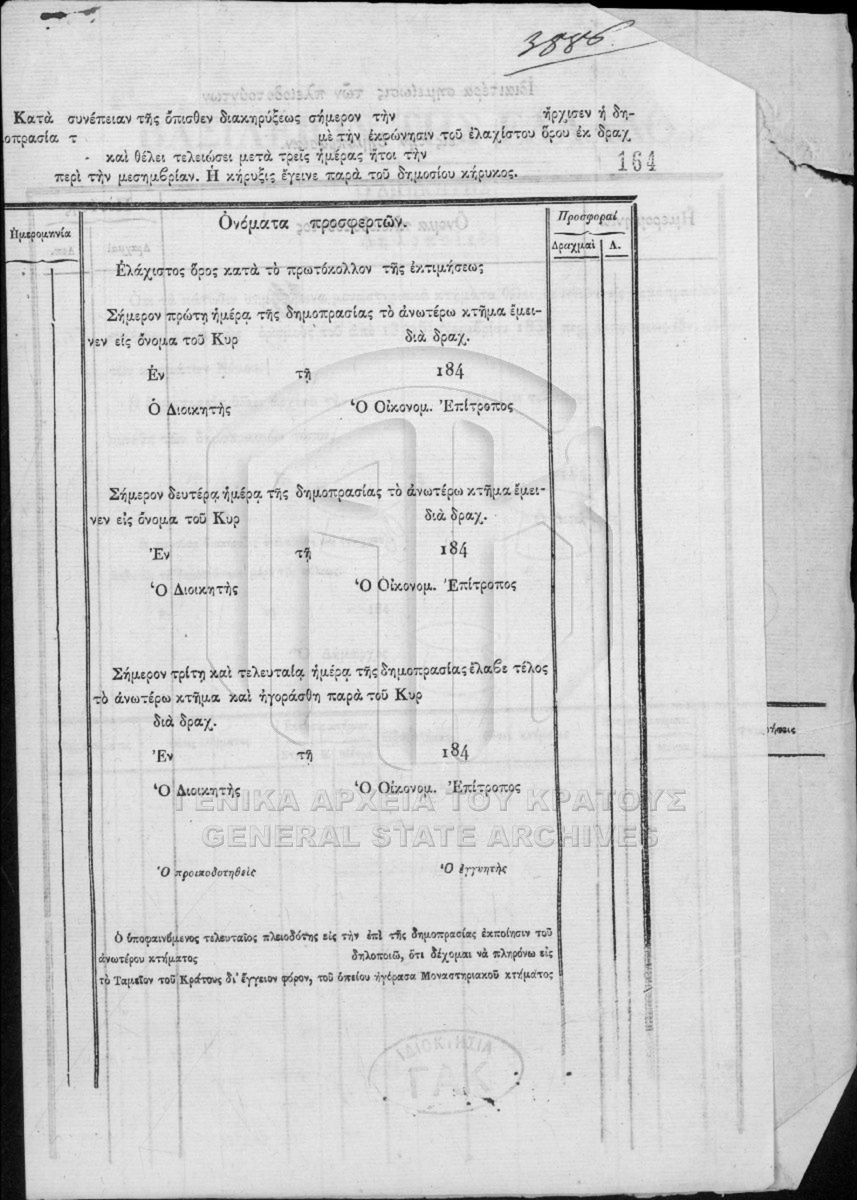 3886
Κατὰ συνέπειαν τῆς ὄπισθεν διακηρύξεως σήμερον τὴν ἤρχισεν ἡ δη-
οπρασία τ μὲ τὴν ἐκφώνησιν τοῦ ἐλαχίστου ὅρου ἐκ δραχ
καὶ θέλει τελειώσει μετὰ τρεῖς ἡμέρας ἤτοι τὴν
164
περὶ τὴν μεσημβρίαν. Ἡ κήρυξις ἔγεινε παρὰ τοῦ δημοσίου κήρυκος.
Ἡμερομηνία
Ὀνόματα προσφερτῶν.
Προσφοραὶ
Δραχμαὶ Λ.
Ἐλάχιστος ὅρος κατὰ τὸ πρωτόκολλον τῆς ἐκτιμήσεως
Σήμερον πρώτῃ ἡμέρᾳ τῆς δημοπρασίας τὸ ἀνωτέρω κτῆμα ἔμει-
νεν εἰς ὄνομα τοῦ Κυρ διὰ δραχ.
Ἐν τῇ 184
Ὁ Διοικητὴς Ὁ Οἰκονομ. Ἐπίτροπος
Σήμερον δευτέρᾳ ἡμέρᾳ τῆς δημοπρασίας τὸ ἀνωτέρω κτῆμα ἔμει-
νεν εἰς ὄνομα τοῦ Κυρ διὰ δραχ.
Ἐν τῇ 184
Ὁ Διοικητὴς Ὁ Οἰκονομ. Ἐπίτροπος
Σήμερον τρίτῃ καὶ τελευταίᾳ ἡμέρᾳ τῆς δημοπρασίας ἔλαβε τέλος
τὸ ἀνωτέρω κτῆμα καὶ ἠγοράσθη παρὰ τοῦ Κυρ
διὰ δραχ.
Ἐν τῇ 184
Ὁ Διοικητὴς Ὁ Οἰκονομ. Ἐπίτροπος
ΓΕΝΙΚΑ ΑΡΧΕΙΑ ΤΟΥ ΚΡΑΤΟΥΣ
GENERAL STATE ARCHIVES
Ὁ προικοδοτηθεὶς Ὁ ἐγγυητὴς
Ὁ ὑποφαινόμενος τελευταῖος πλειοδότης εἰς τὴν ἐπὶ τῆς δημοπρασίας ἐκποίησιν τοῦ
ἀνωτέρου κτήματος δηλοποιῶ, ὅτι δέχομαι νὰ πληρόνω εἰς
τὸ Ταμεῖον τοῦ Κράτους δι' ἔγγειον φόρον, τοῦ ὁποίου ἠγόρασα Μοναστηριακοῦ κτήματος
ΙΔΙΟΚΤΗΣΙΑ
ΓΑΚ